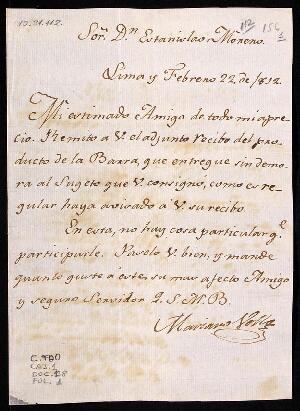 13.21.412
112 156
Sor. Dn. Estanislao Moreno.
Lima y Febrero 22 de 1812
Mi estimado Amigo de todo mi apre-
cio. Remito a V. el adjunto recibo del pro-
ducto de la Barra, que entregue sin demo-
ra al Sugeto que V. consigno, como es re-
gular haya avisado a V. su recibo.
En esta, no hay cosa particular qe.
participarle. Paselo V. bien, y mande
quanto guste a este su mas afecto Amigo
y seguro Servidor Q. S. M. B.
Mariano
CAJ. 1
FOL. 1